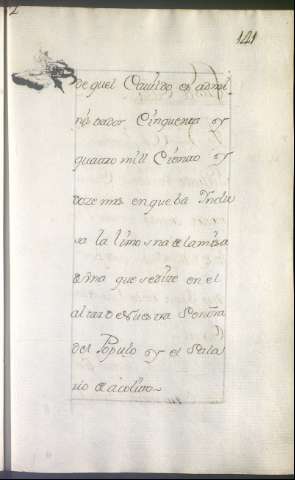 141
de que el Cavildo es admi
nistrador Cinquenta y
quatro mill Ciento y
doze mrs en que ba Inclu
sa la limosna de la misa
que se dize en el
altar de Nuestra Señora
del Populo y el Sala
rio de acolito